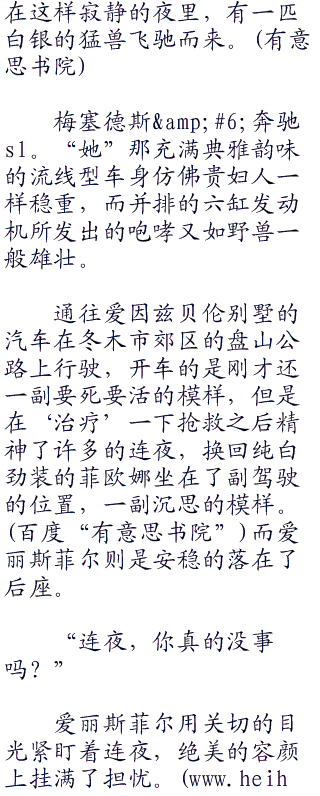 在这样寂静的夜里，有一匹
白银的猛兽飞驰而来。(有意
思书院)
梅塞德斯&amp;#6;奔驰
sl。“她”那充满典雅韵味
的流线型车身仿佛贵妇人一
样稳重，而并排的六缸发动
机所发出的咆哮又如野兽一
般雄壮。
通往爱因兹贝伦别墅的
汽车在冬木市郊区的盘山公
路上行驶，开车的是刚才还
一副要死要活的模样，但是
在‘治疗’一下抢救之后精
神了许多的连夜，换回纯白
劲装的菲欧娜坐在了副驾驶
的位置，一副沉思的模样。
(百度“有意思书院”)而爱
丽斯菲尔则是安稳的落在了
后座。
“连夜，你真的没事
吗？”
爱丽斯菲尔用关切的目
光紧盯着连夜，绝美的容颜
上挂满了担忧。(www.heih